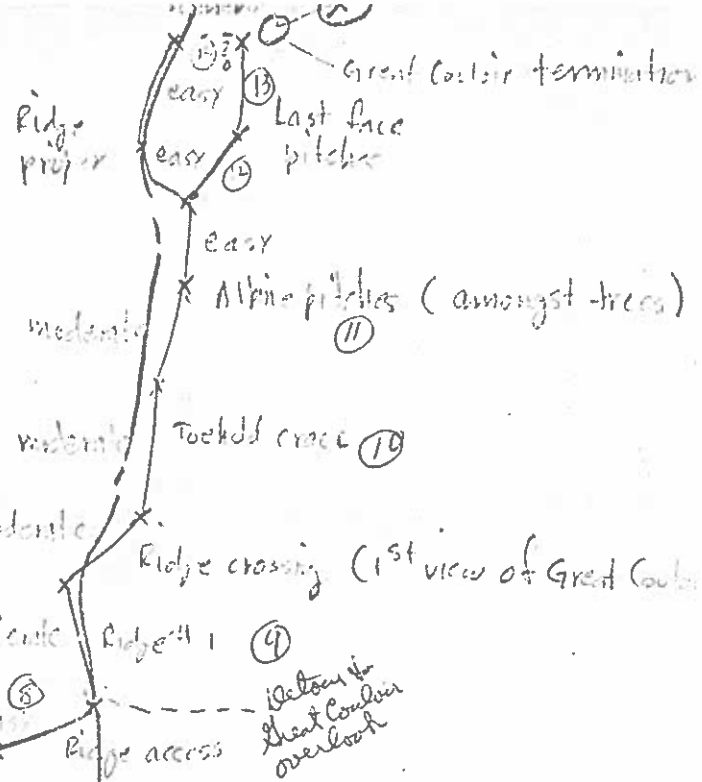 Great Couloir termination
easy
13
Ridge
proper
Last face
pitches
easy
12
easy
Alpine pitches (amongst trees)
11
moderate
moderate
Toehold crack 10
Ridge crossing (1st view of Great
Ridge #1 9
8
Detour to
Great Couloir
overlook
Ridge access